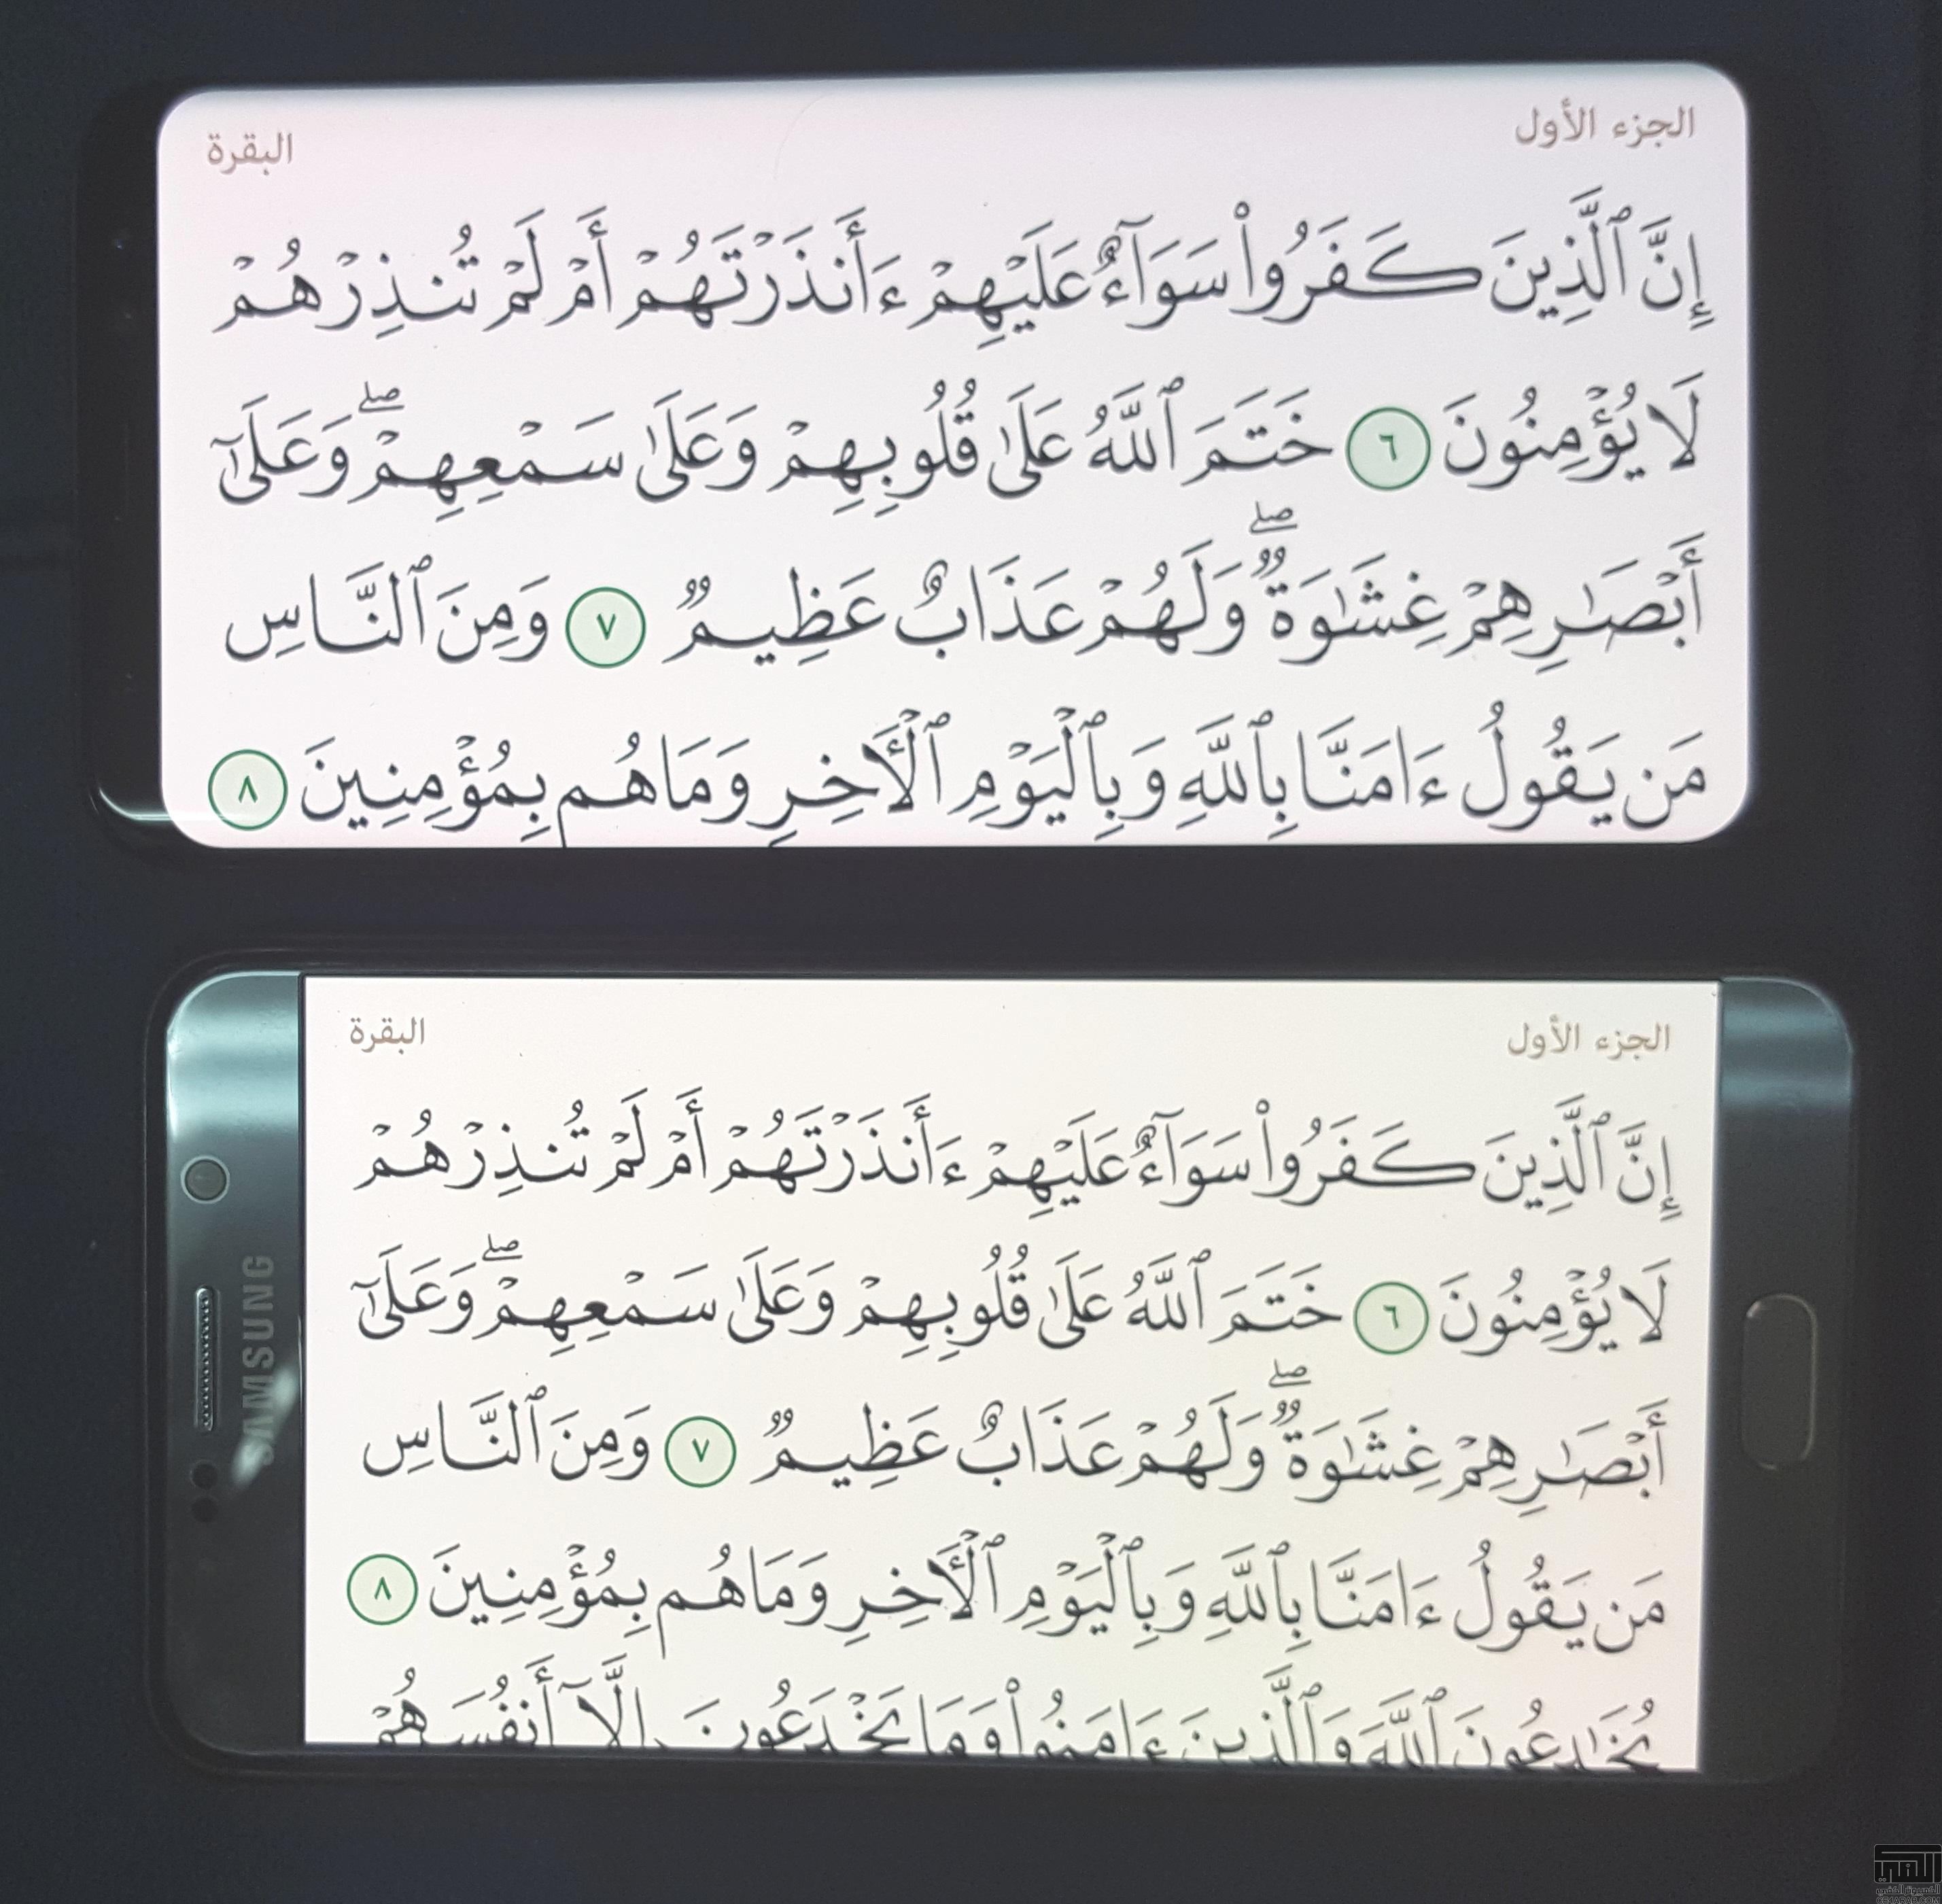 الجزء الأول
البقرة
إِنَّ ٱلَّذِينَ كَفَرُوا۟ سَوَآءٌ عَلَيْهِمْ ءَأَنذَرْتَهُمْ أَمْ لَمْ تُنذِرْهُمْ
لَا يُؤْمِنُونَ ٦ خَتَمَ ٱللَّهُ عَلَىٰ قُلُوبِهِمْ وَعَلَىٰ سَمْعِهِمْ ۖ وَعَلَىٰٓ
أَبْصَـٰرِهِمْ غِشَـٰوَةٌ ۖ وَلَهُمْ عَذَابٌ عَظِيمٌ ٧ وَمِنَ ٱلنَّاسِ
مَن يَقُولُ ءَامَنَّا بِٱللَّهِ وَبِٱلْيَوْمِ ٱلْـَٔاخِرِ وَمَا هُم بِمُؤْمِنِينَ ٨
SAMSUNG
الجزء الأول
البقرة
إِنَّ ٱلَّذِينَ كَفَرُوا۟ سَوَآءٌ عَلَيْهِمْ ءَأَنذَرْتَهُمْ أَمْ لَمْ تُنذِرْهُمْ
لَا يُؤْمِنُونَ ٦ خَتَمَ ٱللَّهُ عَلَىٰ قُلُوبِهِمْ وَعَلَىٰ سَمْعِهِمْ ۖ وَعَلَىٰٓ
أَبْصَـٰرِهِمْ غِشَـٰوَةٌ ۖ وَلَهُمْ عَذَابٌ عَظِيمٌ ٧ وَمِنَ ٱلنَّاسِ
مَن يَقُولُ ءَامَنَّا بِٱللَّهِ وَبِٱلْيَوْمِ ٱلْـَٔاخِرِ وَمَا هُم بِمُؤْمِنِينَ ٨
يُخَـٰدِعُونَ ٱللَّهَ وَٱلَّذِينَ ءَامَنُوا۟ وَمَا يَخْدَعُونَ إِلَّآ أَنفُسَهُمْ